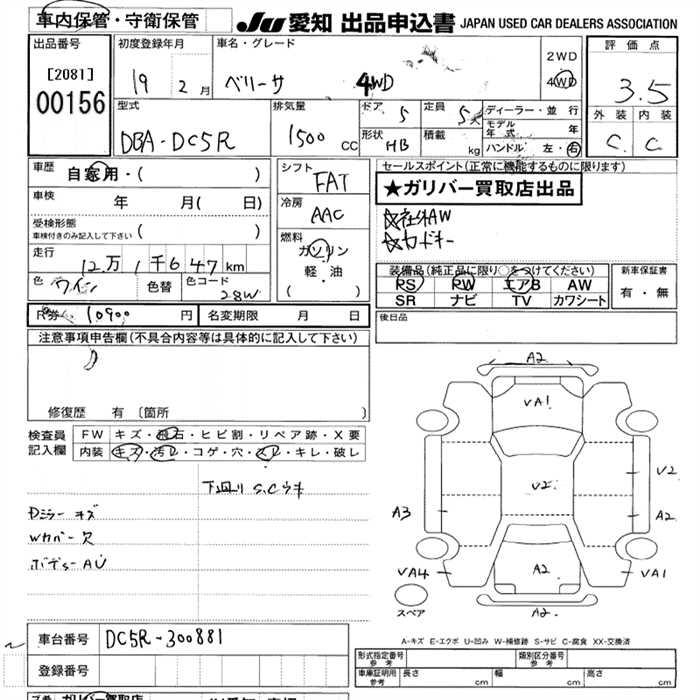 車内保管・守衛保管
JU 愛知 出品申込書 JAPAN USED CAR DEALERS ASSOCIATION
出品番号
[2081]
00156
初度登録年月
19 2月
車名・グレード
ベリーサ 4WD
2WD
4WD
評価点
3.5
外装 内装
C. C
型式
DBA-DC5R
排気量
1500 CC
ドア 5
定員 5人
形状 HB
積載 kg
ディーラー・並行
モデル年式 年
ハンドル 左・右
車歴
自家用・( )
車検
年 月( 日)
受検形態
車検付きのみ記入して下さい ( )
走行
12万1千647km
色 ワイン 色替 色コード 28W
シフト
FAT
冷房
AAC
燃料
ガソリン
軽・油
( )
セールスポイント(正常に機能するものに限ります)
★ガリバー買取店出品
☆社外AW
☆カードキー
装備品(純正品に限り○をつけてください)
PS PW エアB AW
SR ナビ TV カワシート
新車保証書
有・無
R券 10900 円 名変期限 月 日
後日品
注意事項申告欄(不具合内容等は具体的に記入して下さい)
修復歴 有 〔箇所 〕
検査員記入欄
FW キズ・飛石・ヒビ割・リペア跡・X要
内装 キズ・汚レ・コゲ・穴・スレ・キレ・破レ
下回り S.Cウキ
Dミラーキズ
Wカバー欠
ボディーAU
A2
VA1
V2
V2
A3
A2
VA4
A2
VA1
スペア
A2
A-キズ E-エクボ U-凹み W-補修跡 S-サビ C-腐食 XX-交換済
車台番号 DC5R-300881
登録番号
形式指定番号 参考
類別区分番号 参考
車庫証明用 参考 長さ cm 幅 cm 高さ cm
ガリバー買取店